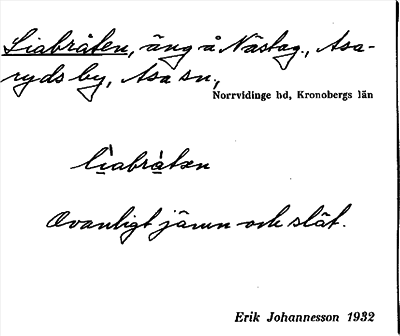 Liabråten, äng å Nästag., Asa-
ryds by, Asa sn.,
Norrvidinge hd, Kronobergs län
lìabràtən
Ovanligt jämn och slät.
Erik Johannesson 1932